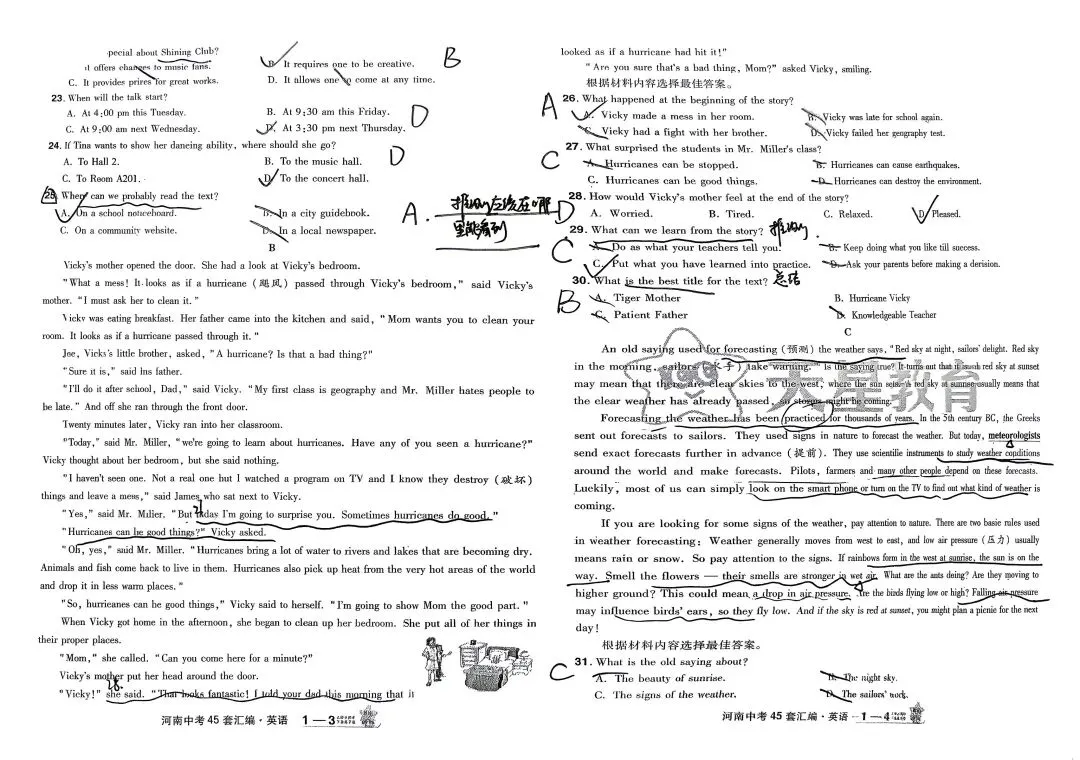 pecial about Shining Club?
it offers changes to music fans.
B. It requires one to be creative.
B
C. It provides prizes for great works.
D. It allows one to come at any time.
23. When will the talk start?
A. At 4:00 pm this Tuesday.
B. At 9:30 am this Friday.
C. At 9:00 am next Wednesday.
D. At 3:30 pm next Thursday.
D
24. If Tina wants to show her dancing ability, where should she go?
A. To Hall 2.
B. To the music hall.
D
C. To Room A201.
D. To the concert hall.
25. Where can we probably read the text?
A. On a school noticeboard.
B. In a city guidebook.
A.
C. On a community website.
D. In a local newspaper.
B
Vicky's mother opened the door. She had a look at Vicky's bedroom.
"What a mess! It looks as if a hurricane (飓风) passed through Vicky's bedroom," said Vicky's
mother. "I must ask her to clean it."
Vicky was eating breakfast. Her father came into the kitchen and said, "Mom wants you to clean your
room. It looks as if a hurricane passed through it."
Joe, Vicky's little brother, asked, "A hurricane? Is that a bad thing?"
"Sure it is," said his father.
"I'll do it after school, Dad," said Vicky. "My first class is geography and Mr. Miller hates people to
be late." And off she ran through the front door.
Twenty minutes later, Vicky ran into her classroom.
"Today," said Mr. Miller, "we're going to learn about hurricanes. Have any of you seen a hurricane?"
Vicky thought about her bedroom, but she said nothing.
"I haven't seen one. Not a real one but I watched a program on TV and I know they destroy (破坏)
things and leave a mess," said James who sat next to Vicky.
"Yes," said Mr. Miller. "But today I'm going to surprise you. Sometimes hurricanes do good."
"Hurricanes can be good things?" Vicky asked.
"Oh, yes," said Mr. Miller. "Hurricanes bring a lot of water to rivers and lakes that are becoming dry.
Animals and fish come back to live in them. Hurricanes also pick up heat from the very hot areas of the world
and drop it in less warm places."
"So, hurricanes can be good things," Vicky said to herself. "I'm going to show Mom the good part."
When Vicky got home in the afternoon, she began to clean up her bedroom. She put all of her things in
their proper places.
"Mom," she called. "Can you come here for a minute?"
Vicky's mother put her head around the door.
28.
"Vicky!" she said. "That looks fantastic! I told your dad this morning that it
河南中考45套汇编·英语 1—3
looked as if a hurricane had hit it!"
"Are you sure that's a bad thing, Mom?" asked Vicky, smiling.
根据材料内容选择最佳答案。
A
26. What happened at the beginning of the story?
A. Vicky made a mess in her room.
B. Vicky was late for school again.
C. Vicky had a fight with her brother.
D. Vicky failed her geography test.
27. What surprised the students in Mr. Miller's class?
C
A. Hurricanes can be stopped.
B. Hurricanes can cause earthquakes.
C. Hurricanes can be good things.
D. Hurricanes can destroy the environment.
28. How would Vicky's mother feel at the end of the story?
D
A. Worried.
B. Tired.
C. Relaxed.
D. Pleased.
29. What can we learn from the story?
C
A. Do as what your teachers tell you.
B. Keep doing what you like till success.
C. Put what you have learned into practice.
D. Ask your parents before making a decision.
30. What is the best title for the text?
总结
B
A. Tiger Mother
B. Hurricane Vicky
C. Patient Father
D. Knowledgeable Teacher
C
An old saying used for forecasting (预测) the weather says, "Red sky at night, sailors' delight. Red sky
in the morning, sailors (水手) take warning." Is the saying true? It turns out that it is. A red sky at sunset
may mean that there are clear skies to the west, where the sun sets. A red sky at sunrise usually means that
the clear weather has already passed, so storms might be coming.
大星教育
Forecasting the weather has been practiced for thousands of years. In the 5th century BC, the Greeks
sent out forecasts to sailors. They used signs in nature to forecast the weather. But today, meteorologists
send exact forecasts further in advance (提前). They use scientific instruments to study weather conditions
around the world and make forecasts. Pilots, farmers and many other people depend on these forecasts.
Luckily, most of us can simply look on the smart phone or turn on the TV to find out what kind of weather is
coming.
If you are looking for some signs of the weather, pay attention to nature. There are two basic rules used
in weather forecasting: Weather generally moves from west to east, and low air pressure (压力) usually
means rain or snow. So pay attention to the signs. If rainbows form in the west at sunrise, the sun is on the
way. Smell the flowers — their smells are stronger in wet air. What are the ants doing? Are they moving to
higher ground? This could mean a drop in air pressure. Are the birds flying low or high? Falling air pressure
may influence birds' ears, so they fly low. And if the sky is red at sunset, you might plan a picnic for the next
day!
根据材料内容选择最佳答案。
31. What is the old saying about?
C
A. The beauty of sunrise.
B. The night sky.
C. The signs of the weather.
D. The sailors' work.
河南中考45套汇编·英语 1—4